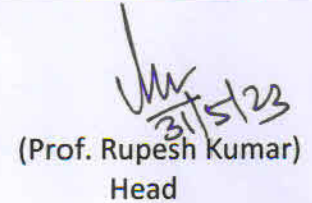 31/5/23
(Prof. Rupesh Kumar)
Head